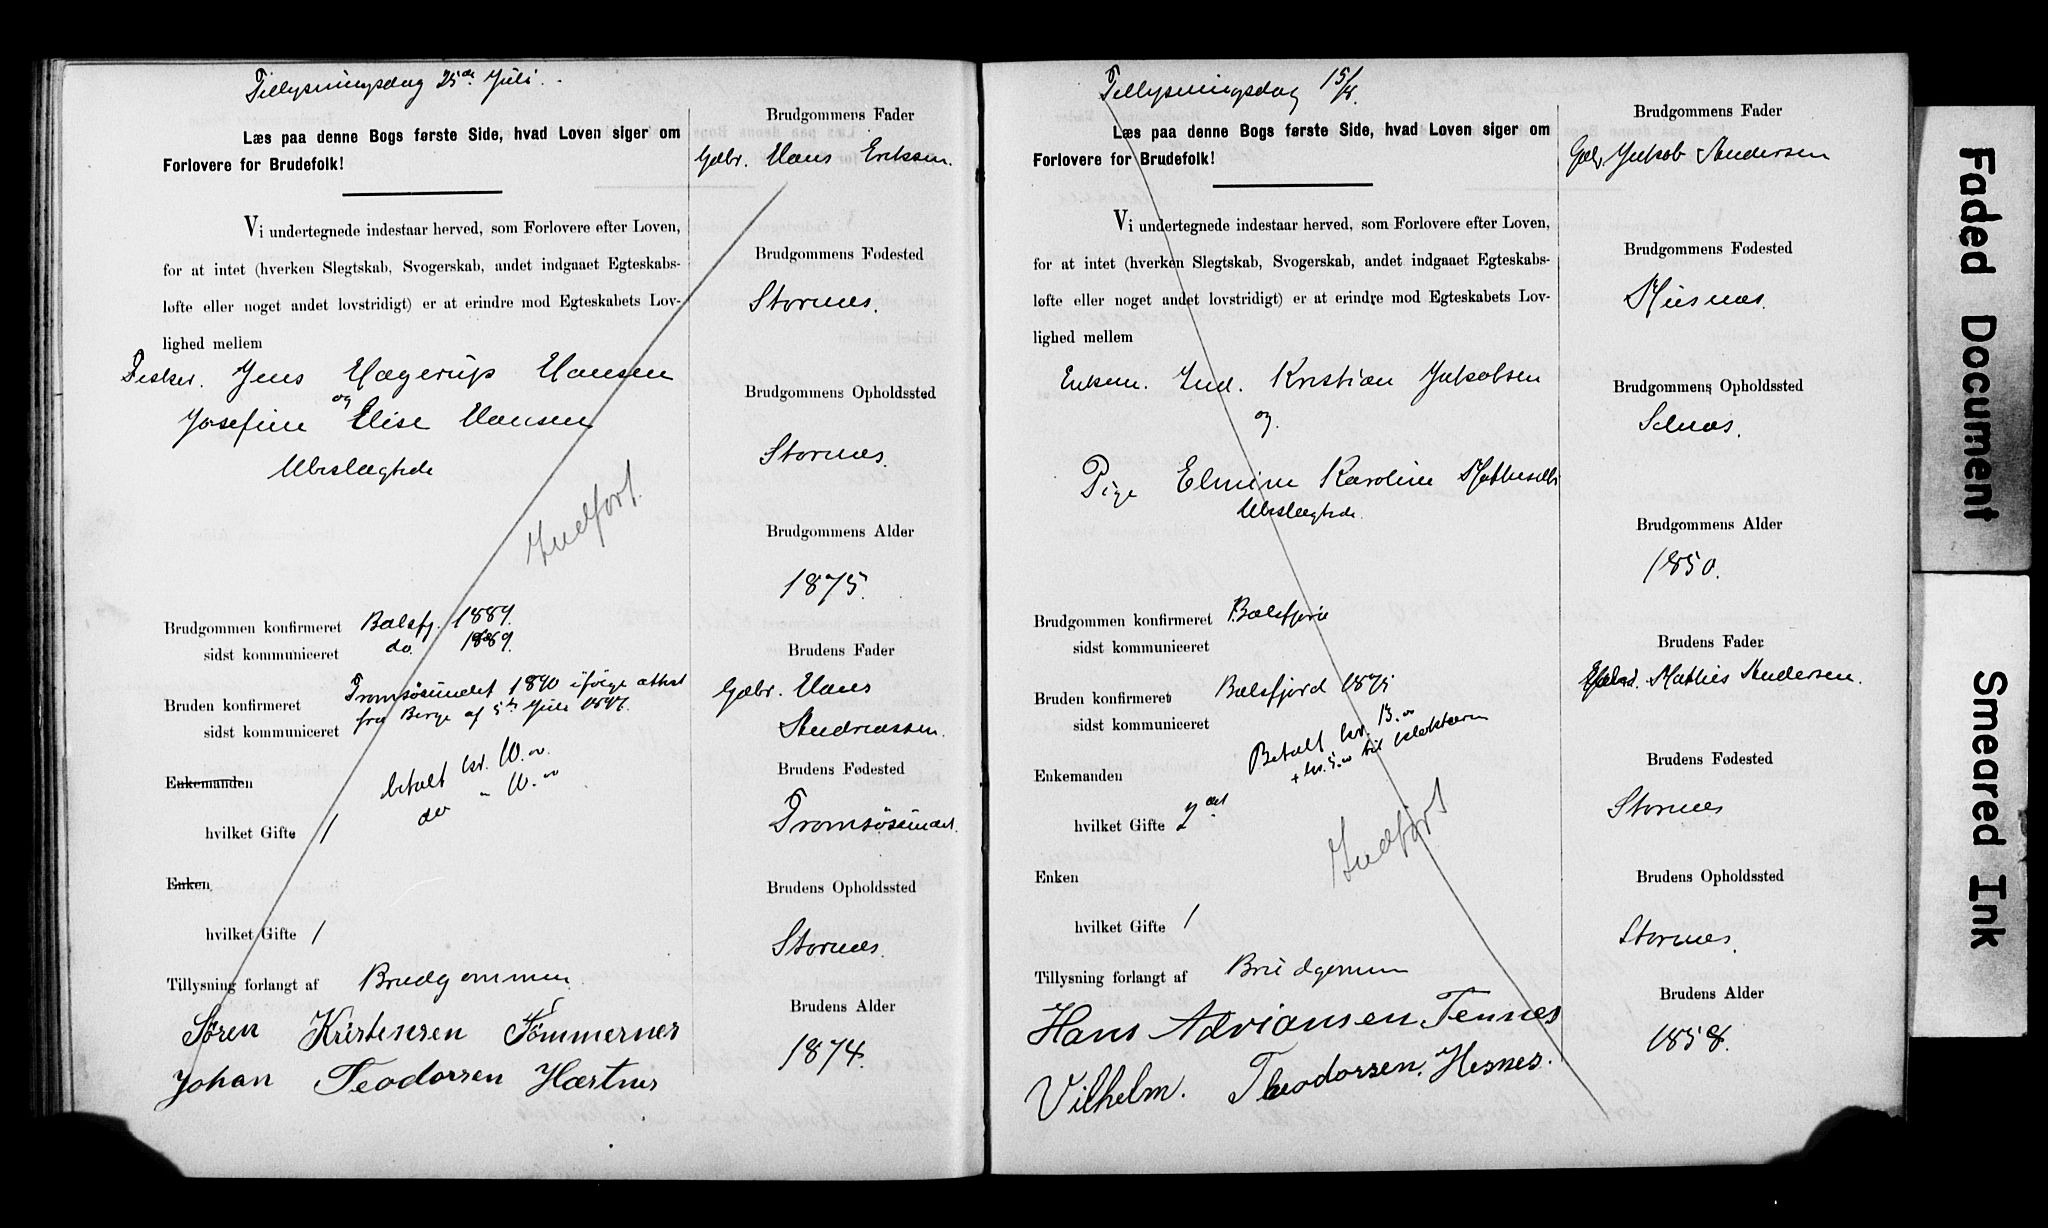 Tillysningsdag 25de Juli.
Læs paa denne Bogs første Side, hvad Loven siger om
Forlovere for Brudefolk!
Vi undertegnede indestaar herved, som Forlovere efter Loven,
for at intet (hverken Slegtskab, Svogerskab, andet indgaaet Egteskabs-
løfte eller noget andet lovstridigt) er at erindre mod Egteskabets Lov-
lighed mellem
Fisker. Jens Hagerup Hansen
og
Josefine Elise Hansen
Ubeslægtede
Indført.
Brudgommen konfirmeret Balsfj. 1889.
sidst kommuniceret do. 1889.
Bruden konfirmeret Tromsøsundet 1890 ifølge attest
sidst kommuniceret fra Berge af 5te Juli 1897.
Enkemanden betalt kr. 10.00
do " 10.00
hvilket Gifte 1
Enken
hvilket Gifte 1
Tillysning forlangt af Brudgommen
Søren Kristensen Tømmernes
Johan Teodorsen Hastnes
Brudgommens Fader
Gbr. Hans Eriksen.
Brudgommens Fødested
Stornes.
Brudgommens Opholdssted
Stornes.
Brudgommens Alder
1875.
Brudens Fader
Gbr. Hans
Andreassen.
Brudens Fødested
Tromsøsundet.
Brudens Opholdssted
Stornes.
Brudens Alder
1874.
Tillysningsdag 15/8.
Læs paa denne Bogs første Side, hvad Loven siger om
Forlovere for Brudefolk!
Vi undertegnede indestaar herved, som Forlovere efter Loven,
for at intet (hverken Slegtskab, Svogerskab, andet indgaaet Egteskabs-
løfte eller noget andet lovstridigt) er at erindre mod Egteskabets Lov-
lighed mellem
Enkem. Ind. Kristian Jakobsen
og
Pige Elmine Karoline Mathisdtr
Ubeslægtede.
Brudgommen konfirmeret Balsfjord
sidst kommuniceret
Bruden konfirmeret Balsfjord 1875
sidst kommuniceret
Betalt kr. 13.00
+ kr. 5.00 til klokkeren
Enkemanden
hvilket Gifte 2det
Indført
Enken
hvilket Gifte 1
Tillysning forlangt af Brudgommen
Hans Adriansen Tennes
Vilhelm. Theodorsen. Hesnes.
Brudgommens Fader
Gbr. Jakob Andersen
Brudgommens Fødested
Brudgommens Opholdssted
Selnæs.
Brudgommens Alder
1850.
Brudens Fader
Mathis Andersen.
Brudens Fødested
Stornes
Brudens Opholdssted
Stornes.
Brudens Alder
1858.
Faded Document
Smeared Ink